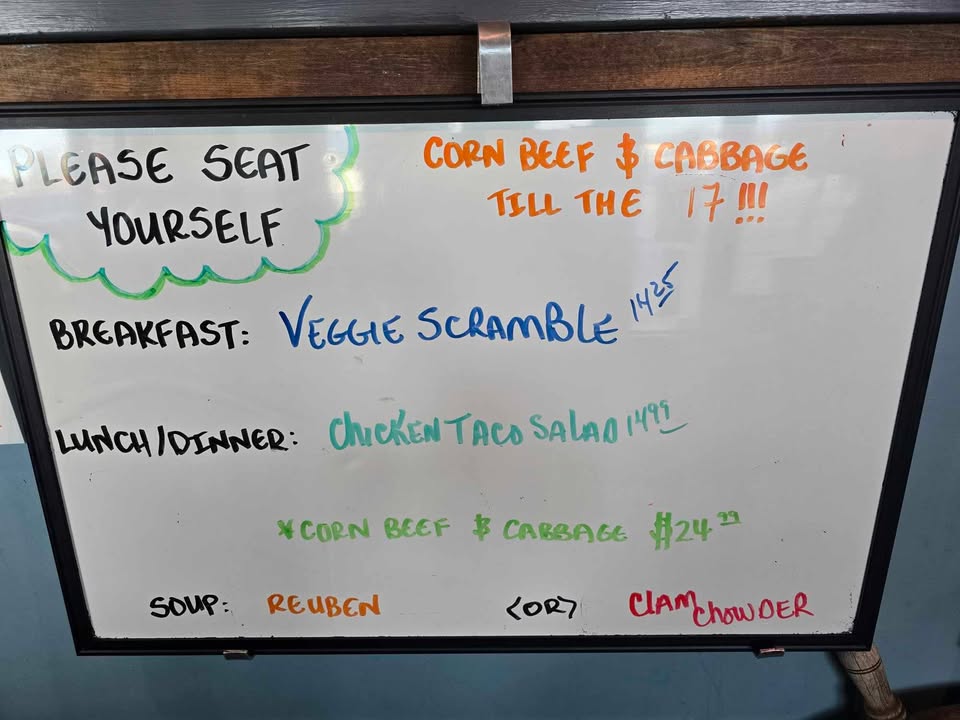 PLEASE SEAT
YOURSELF
CORN BEEF $ CABBAGE
TILL THE 17!!!
BREAKFAST: VEGGIE SCRAMBLE 14.25
LUNCH/DINNER: CHICKEN TACO SALAD 14.99
*CORN BEEF $ CABBAGE $24.99
SOUP: REUBEN <OR> CLAM CHOWDER